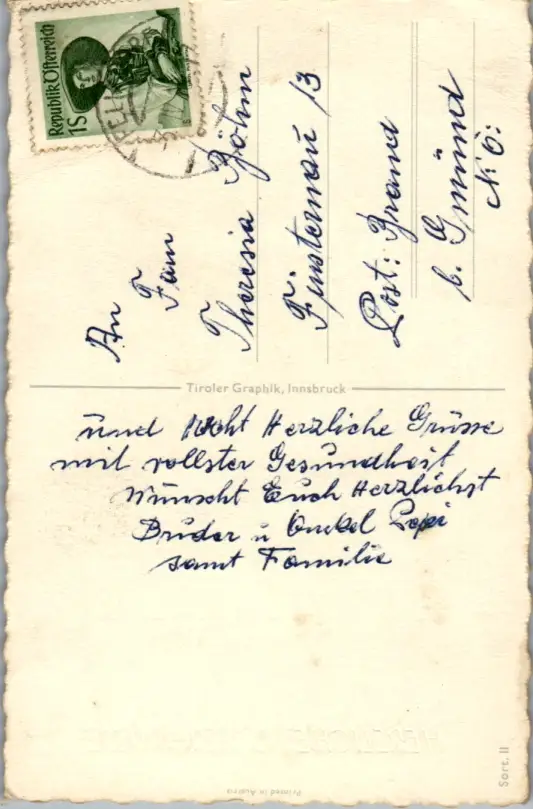 Republik Österreich
1S
An
Fam
Theresia Böhm
Finsternau 13
Post: Brand
b. Gmünd
N.Ö:
Tiroler Graphik, Innsbruck
und recht Herzliche Grüsse
mit vollster Gesundheit
wünscht Euch Herzlichst
Bruder u Onkel Pepi
samt Familie
Printed in Austria
Sort. II